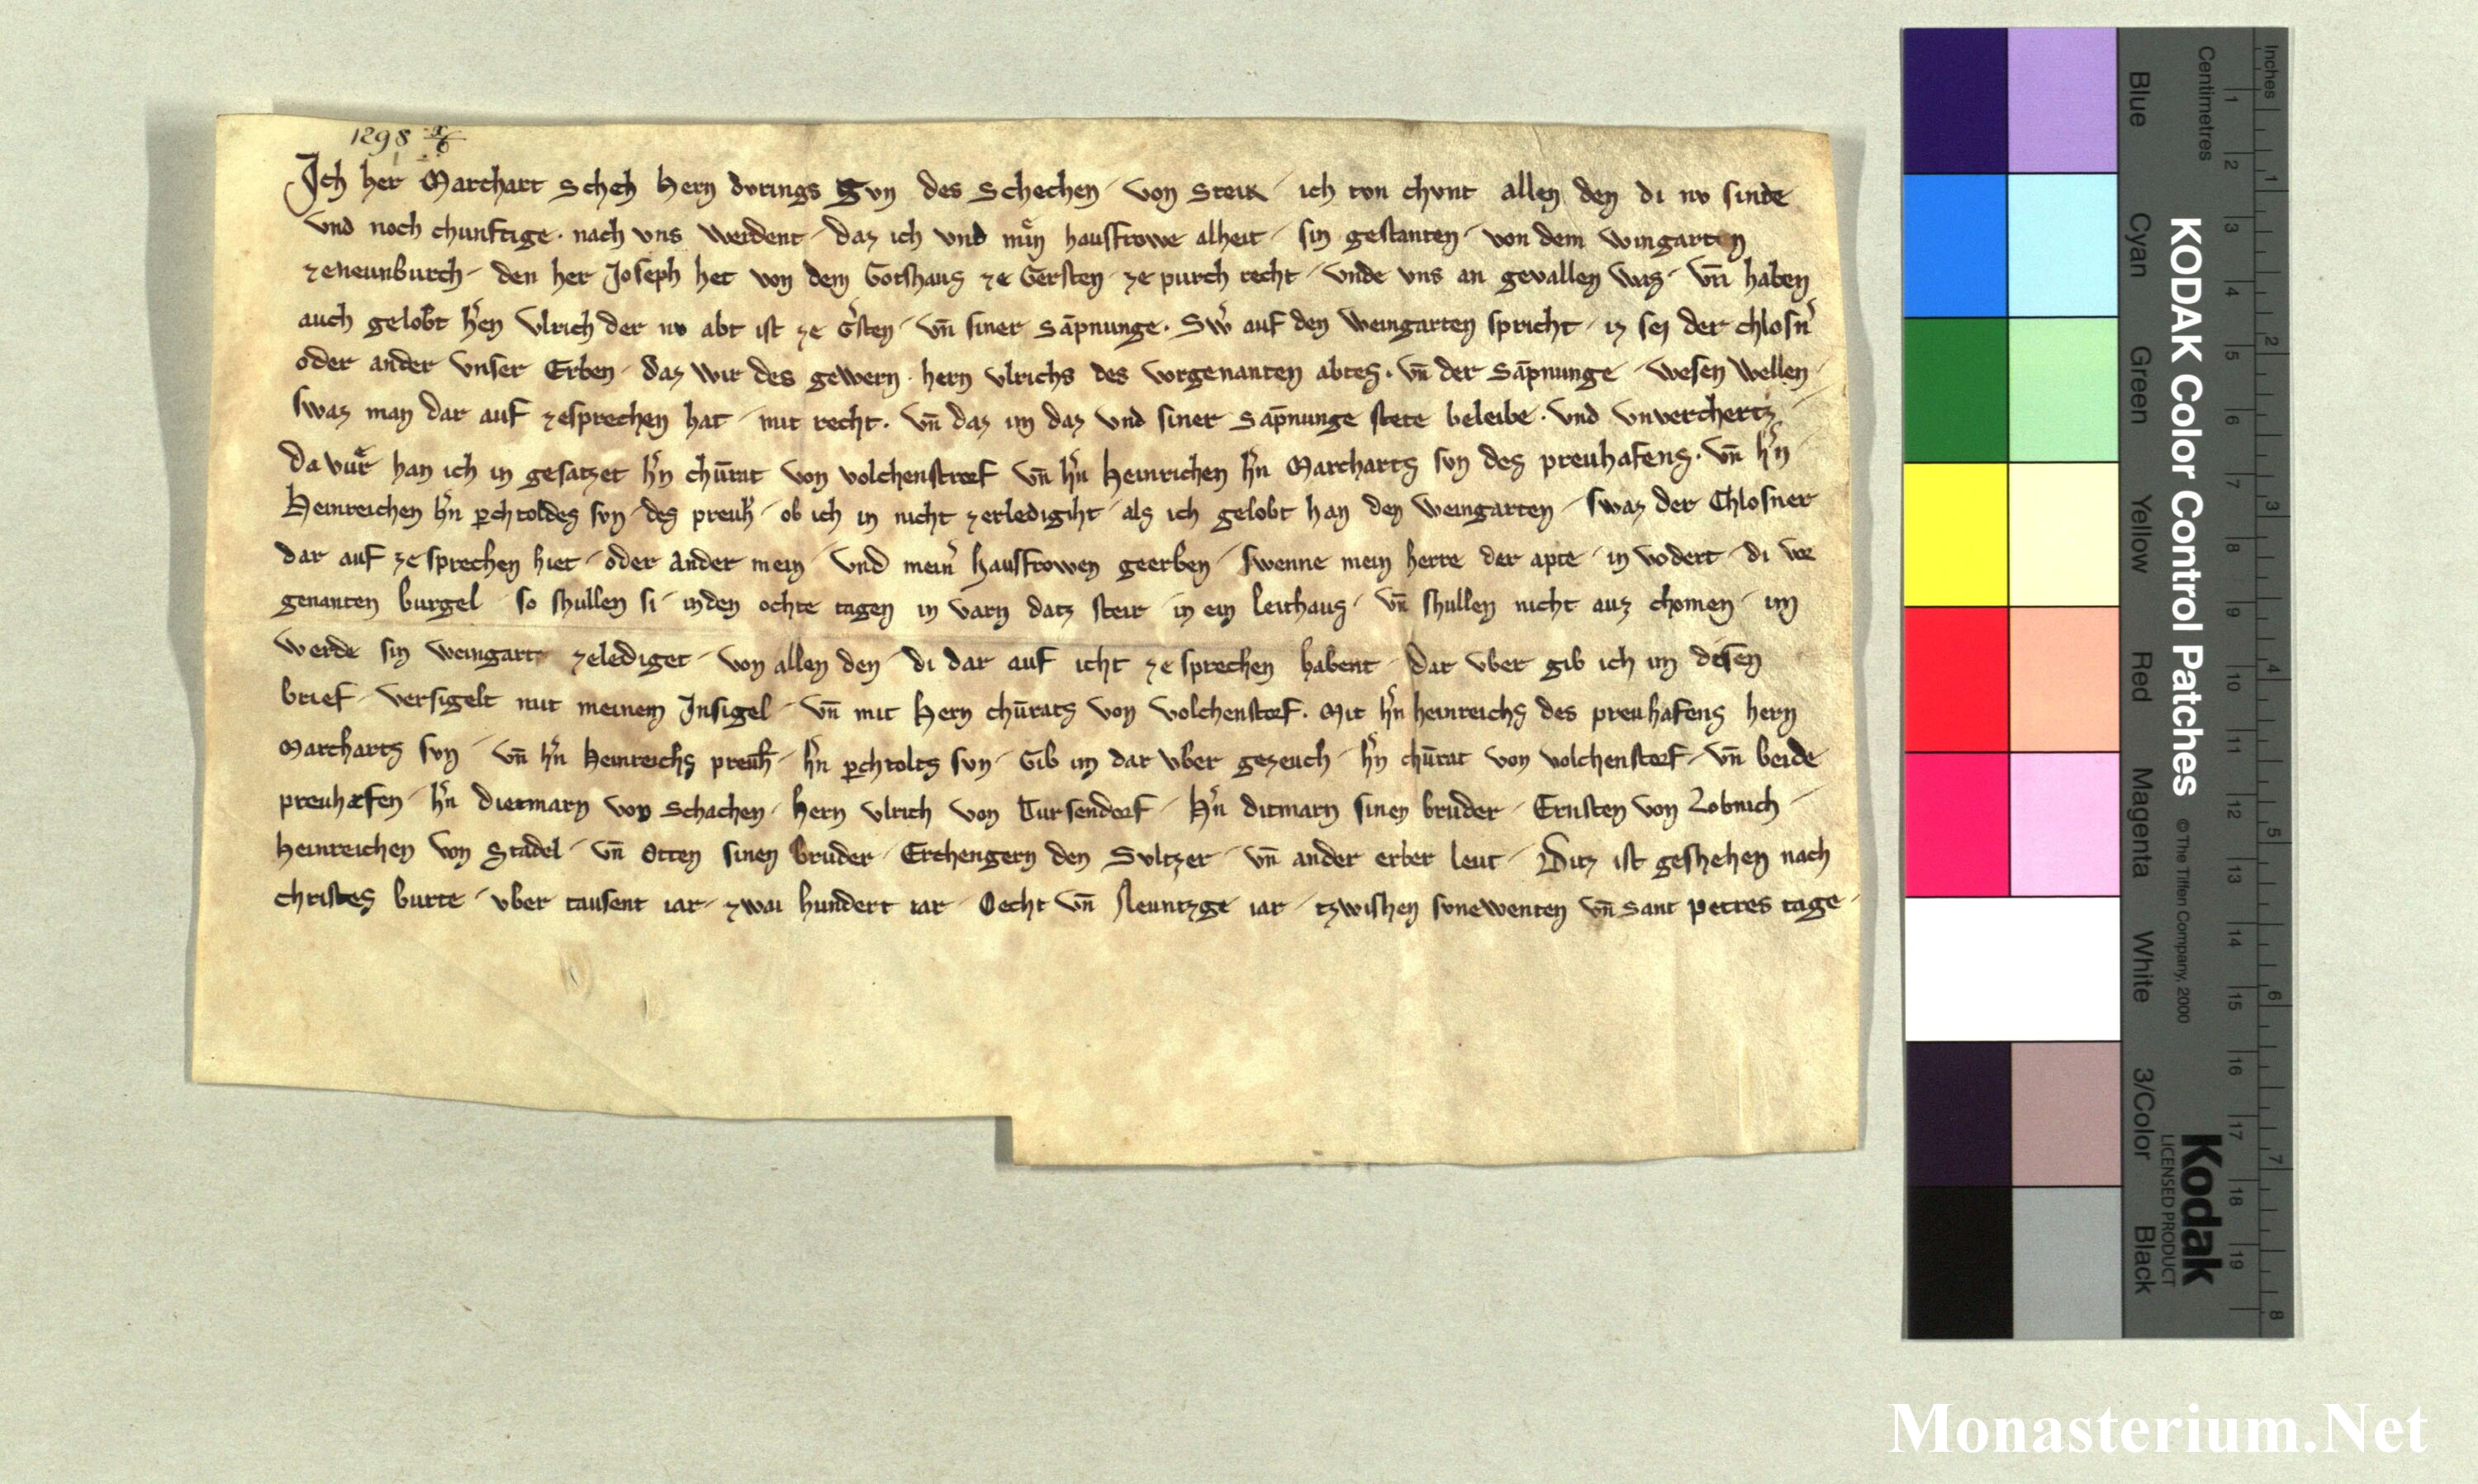 1298
Ich her Marchart Scheh hern durings Svn des Schechen von Steir ich tvn chvnt allen den di nv sinde
vnd noch chunftige nach vns werdent daz ich vnd min hausfrowe alheit sin gestanten von dem wingarten
zeneunburch den her Joseph het von dem Gotshaus ze Gersten ze purch recht vnde vns an gevallen was vn̄ haben
auch gelobt h'en Vlrich der nv abt ist ze G'sten vn̄ siner Sāpnunge. Sw' auf den weingarten spricht iz sei der chlosn'
oder ander vnser Erben daz wir des gewern hern Vlrichs des vorgenanten abtes. vn̄ der Sāpnunge wesen wellen
swaz man dar auf zesprechen hat mit recht. vn̄ daz im daz vnd siner Sāpnunge stete beleibe. vnd vnverchertz
Da vur han ich in gesatzet h'n chūrat von volchenstorf vn̄ h'n Heinrichen h'n Marcharts svn des preuhafens. vn̄ h'n
Heinreichen h'n p̱chtoldes svn des preuh' ob ich in nicht zerledigiht als ich gelobt han den weingarten swaz der Chlosner
dar auf ze sprechen hiet oder ander mein vnd mein' hausfrowen geerben swenne mein herre der apte in vodert di vor
genanten burgel so shullen si inden ochte tagen in varn datz steir in ein leithaus vn̄ shullen nicht auz chomen im
werde sin weingart zelediget von allen den di dar auf icht ze sprechen habent dar vber gib ich im disen
brief versigelt mit meinem Insigel vn̄ mit hern chūrats von volchenstorf. Mit h'n heinreichs des preuhafens hern
Marcharts svn vn̄ h'n Heinreichs preuh̄ h'n p̱chtolts svn Gib im dar vber gezeuch h'n chūrat von volchenstorf vn̄ beide
preuhafen h'n dietmarn von Schachen hern vlrich von Tursendorf h'n ditmarn sinen bruder Ernsten von Lobnich
Heinreichen von Stadel vn̄ Otten sinen bruder Erchengern den Sultzer vn̄ ander erber leut Ditz ist geshehen nach
christes burte vber tausent iar zwai hundert iar Oecht vn̄ Neuntzge iar tzwishen svnewenten vn̄ sant petres tage
Inches
Centimetres
KODAK Color Control Patches © The Tiffen Company, 2000
Kodak
LICENSED PRODUCT
Blue Cyan Green Yellow Red Magenta White 3/Color Black
1 2 3 4 5 6 7 8 9 10 11 12 13 14 15 16 17 18 19
1 2 3 4 5 6 7 8
Monasterium.Net